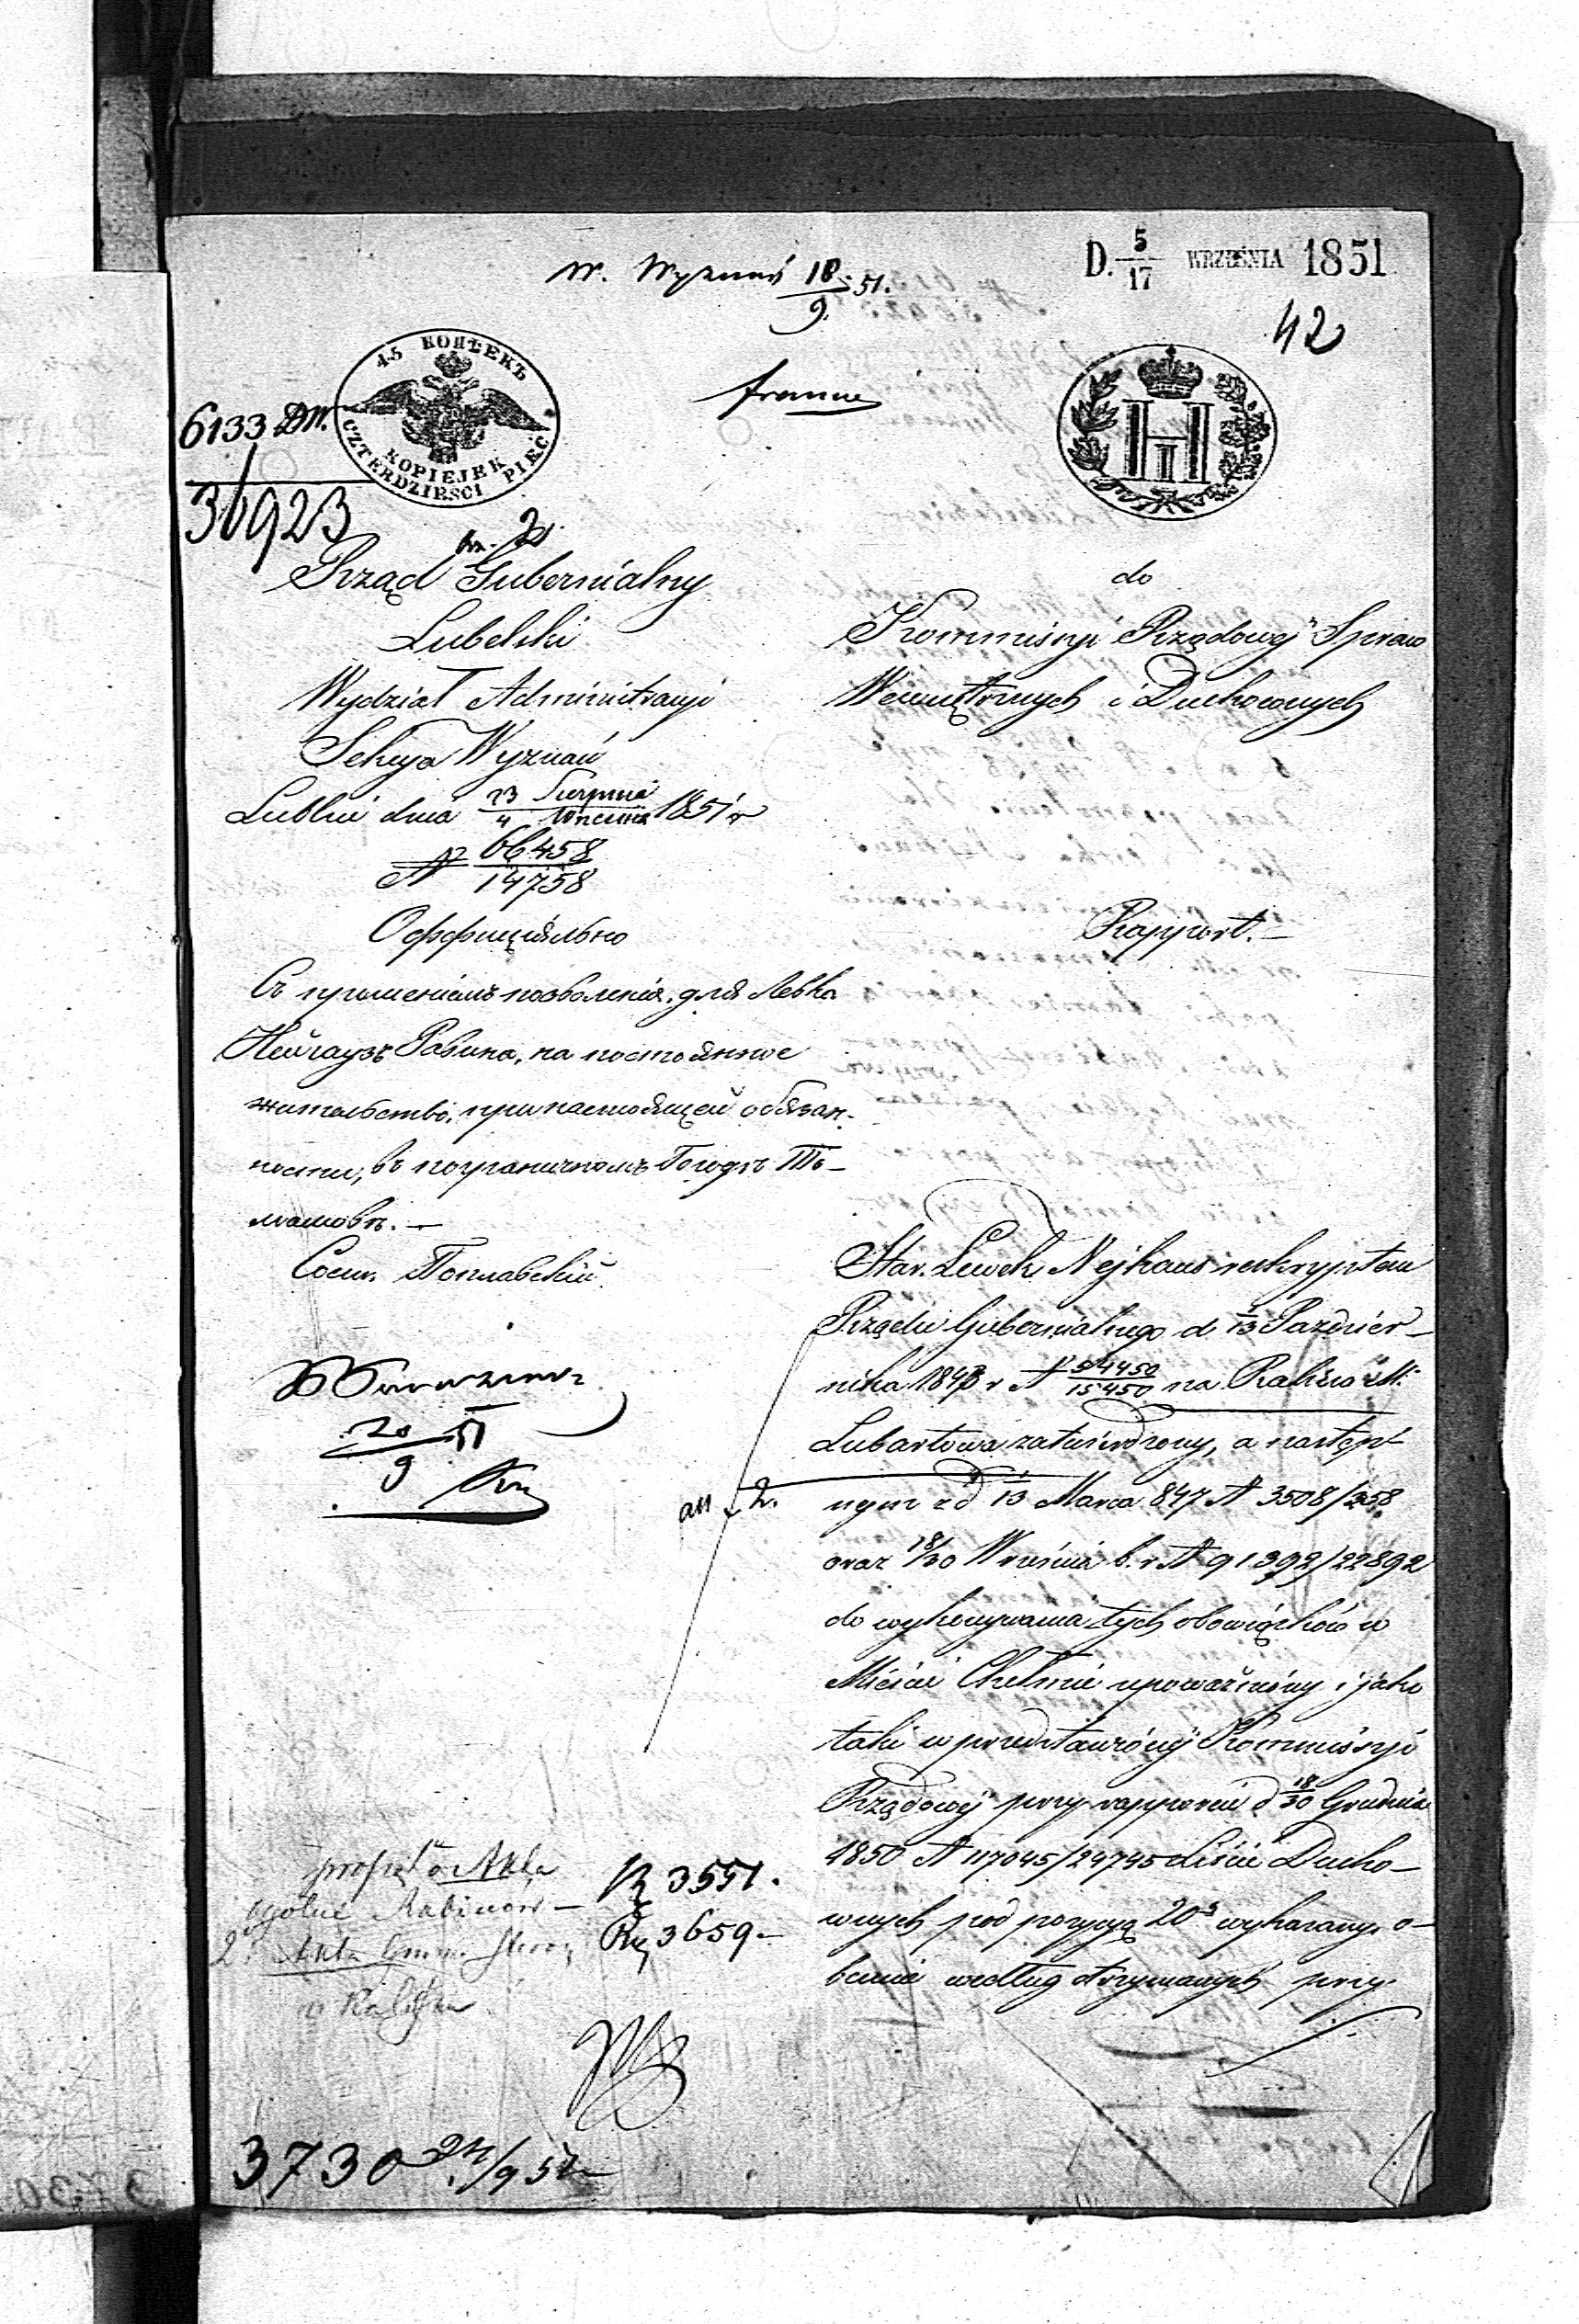 D. 5/17 WRZEŚNIA 1851
W. Wyznań 18/9 51.
42
45 КОПѢЕКЪ
KOPIEJEK
CZTERDZIESCI PIĘC
Н I
6133 DW.
36923
Rząd Gubernialny
Lubelski
Wydział Administracyi
Sekcya Wyznań
Lublin dnia 23 Sierpnia / 4 Września 1851 r
N 66458/14758
Оффиціяльно
Съ прошеніемъ позволенія, для Левка
Нейгаузъ Рабина, на постоянное
жительство, при настоящей обязан-
ности, въ пограничномъ Городѣ То-
машовѣ. —
Сост. Поплавскій
20/9 51
do
Kommissyi Rządowej Spraw
Wewnętrznych i Duchownych
Rapport. —
Star. Lewek Nejhaus reskryptem
Rządu Gubernialnego d 1/13 Paździer-
nika 1843 r N 54450/15450 na Rabina M.
Lubartowa zatwierdzony, a następ-
nym z d 1/13 Marca 847 N 3508/358.
oraz 18/30 Września b. r N 91392/22892
do wykonywania tych obowiązków w
Mieście Chełmie upoważniony i jako
taki w przedstawionej Kommissyi
Rządowej przy rapporcie d 18/30 Grudnia
1850 N 117045/29745 Liście Ducho-
wnych pod pozycyą 20 wykazany, o-
becnie według otrzymanych przy
an 2.
ogólne Rabinów —
2° Akta
R 3551.
Rz 3659 —
3730 24/9 51